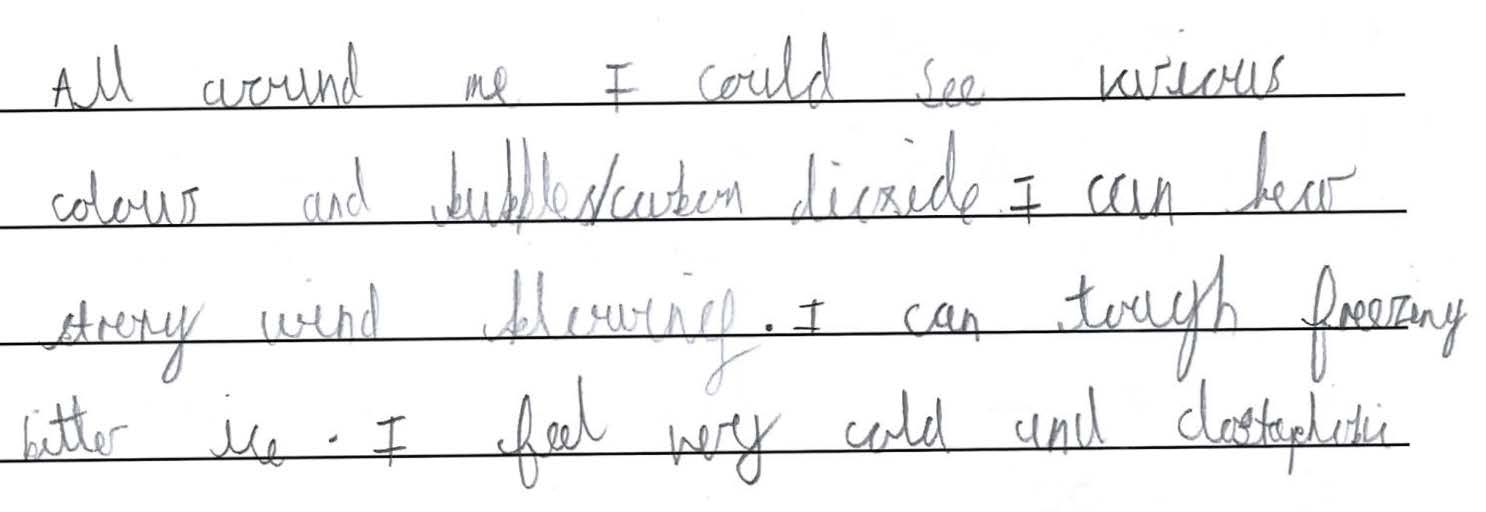 All around me I could see various
colours and bubbles/carbon dioxide. I can hear
strong wind blowing. I can tough freezing
bitter ice. I feel very cold and clostaphobic